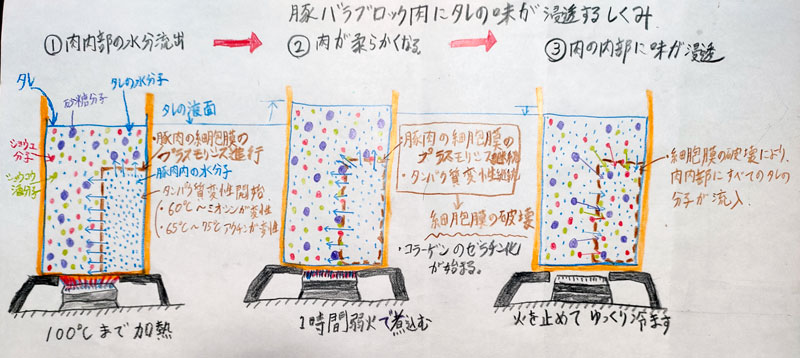 豚バラブロック肉にタレの味が浸透するしくみ
①肉内部の水分流出
②肉が柔らかくなる
③肉の内部に味が浸透
タレ
砂糖分子
タレの水分子
タレの液面
ショウユ
分子
分子
・豚肉の細胞膜の
プラスモリシス進行
豚肉内の水分子
・タンパク質変性開始
・60℃〜ミオシンが変性
・65℃〜75℃アクチンが変性
100℃まで加熱
・豚肉の細胞膜の
プラスモリシス継続
・タンパク質変性継続
細胞膜の破壊
・コラーゲンのゼラチン化
が始まる。
1時間弱火で煮込む
・細胞膜の破壊により、
肉内部にすべてのタレの
分子が流入.
火を止めてゆっくり冷ます